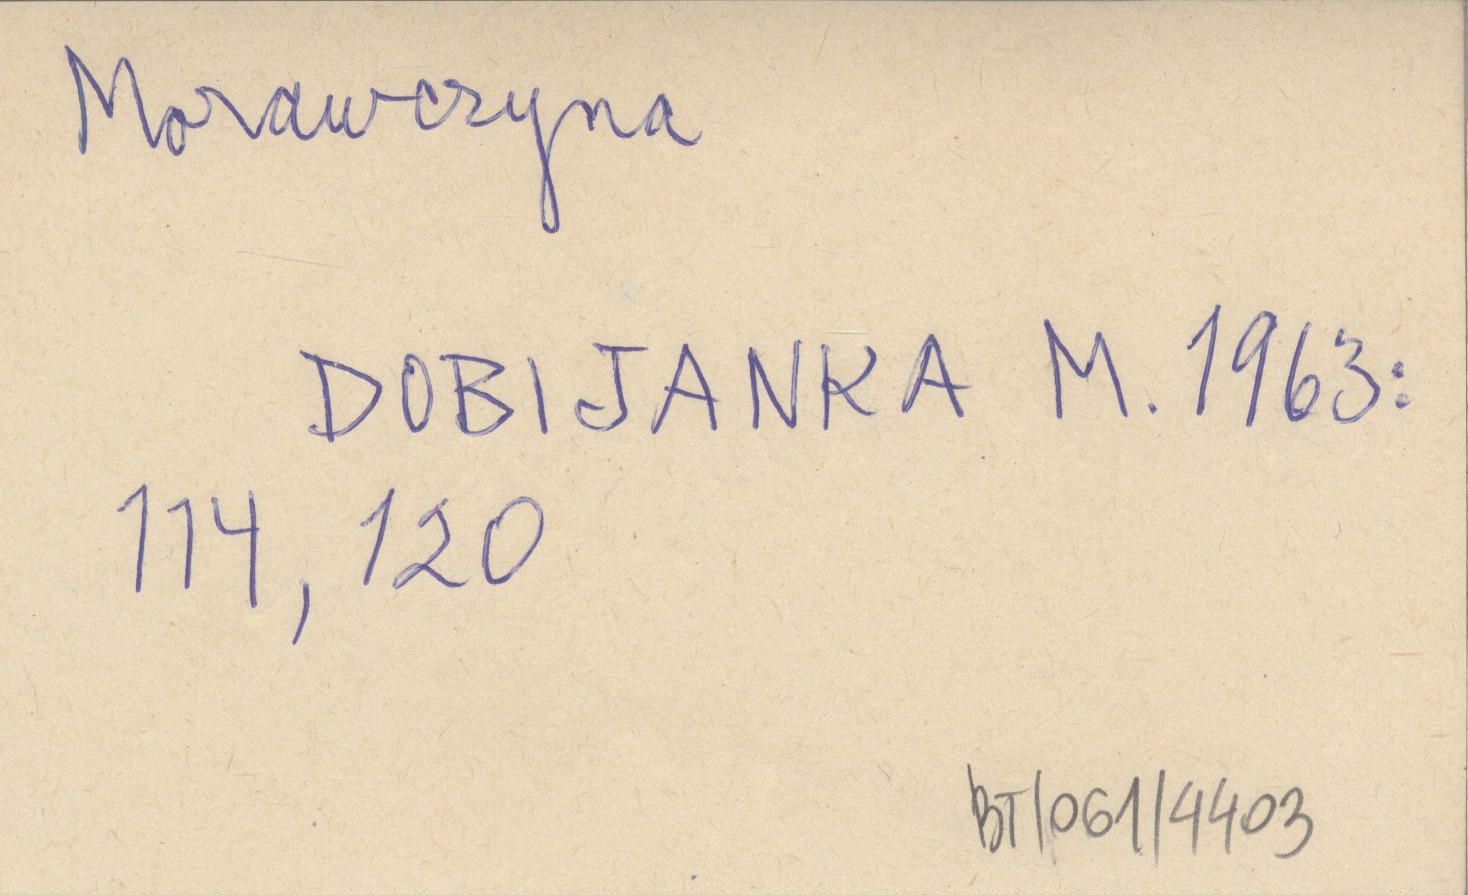 Morawczyna
DOBIJANKA M. 1963:
114, 120
BT/061/4403